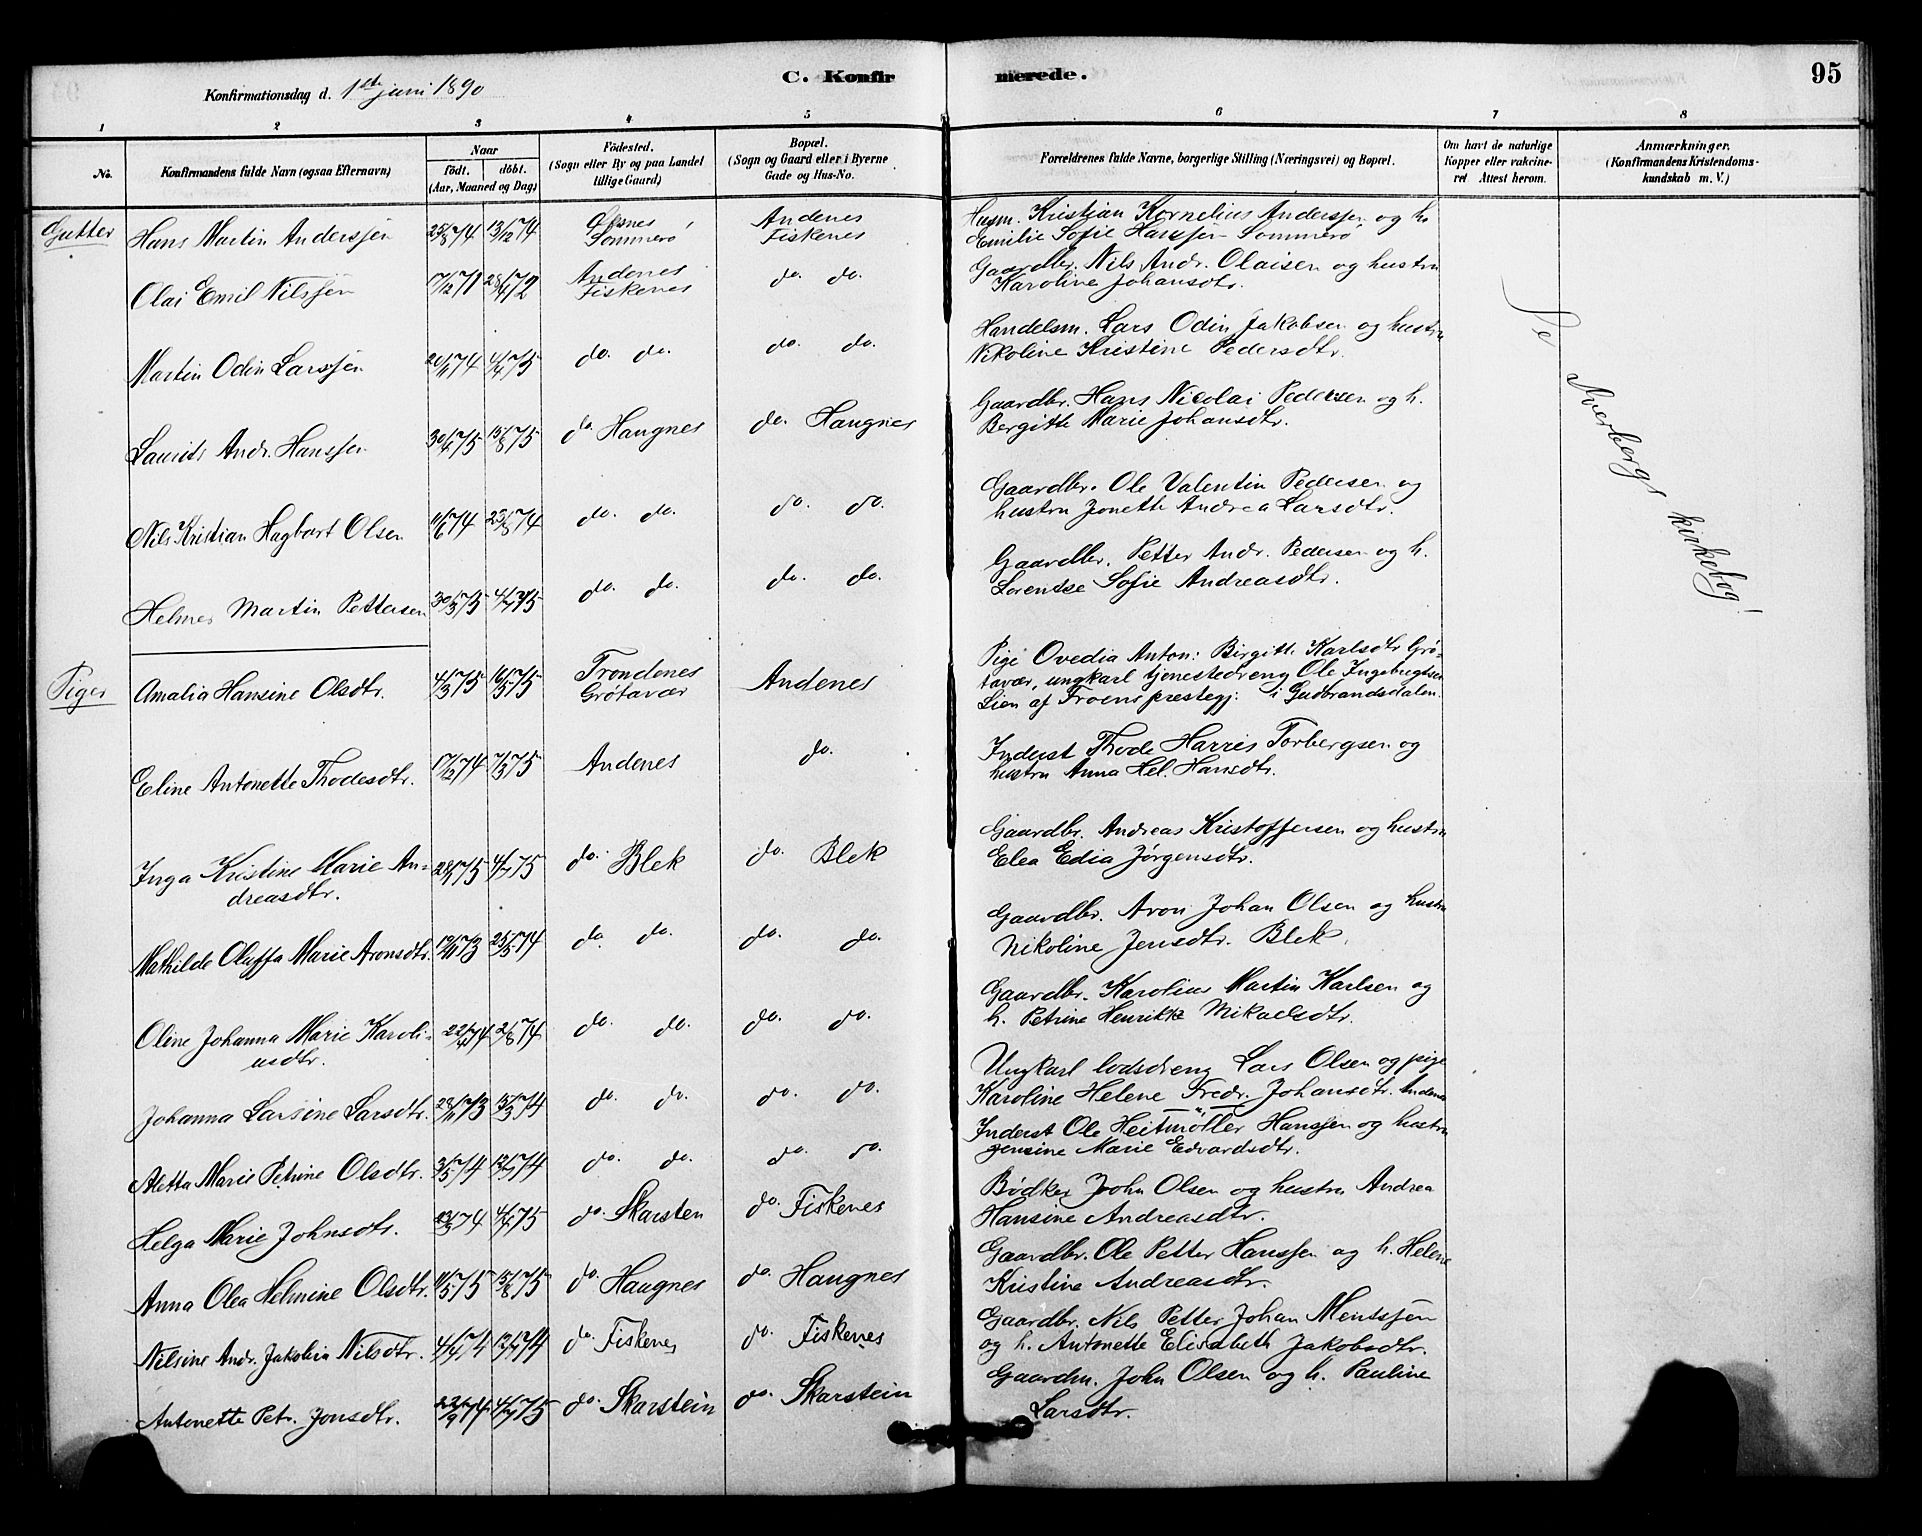 C. Konfirmerede.
95
Konfirmationsdag d. 1ste juni 1890
1 2 3 4 5 6 7 8
No.
Konfirmandens fulde Navn (ogsaa Efternavn)
Naar
födt. döbt.
(Aar, Maaned og Dag)
Födested.
(Sogn eller By og paa Landet
tillige Gaard)
Bopæl.
(Sogn og Gaard eller i Byerne
Gade og Hus-No.
Forældrenes fulde Navne, borgerlige Stilling (Næringsvei) og Bopæl.
Om havt de naturlige
Kopper eller vakcine-
ret Attest herom.
Anmærkninger.
(Konfirmandens Kristendoms-
kundskab m. V.)
Gutter
Hans Martin Anderssen 25/8 74 13/12 74 Sommerø Andenes Fiskenes
Husm. Kristian Kornelius Anderssen og h.
Emilie Sofie Hanssen Sommerø
Olai Emil Nilssen 17/12 71 28/4 72 Andenes Fiskenes do. do.
Gaardbr. Nils Andr. Olaisen og hustru
Karoline Johansdtr.
Martin Odin Larssen 20/11 74 4/4 75 do. do. do. do.
Handelsm. Lars Odin Jakobsen og hustru
Nikoline Kristine Pedersdtr.
Laurits Andr. Hanssen 30/4 75 15/8 75 do. Haugnes do. Haugnes
Gaardbr. Hans Nicolai Pedersen og h.
Bergitte Marie Johansdtr.
Nils Kristian Hagbart Olsen 11/6 74 23/8 74 do. do. do. do.
Gaardbr. Ole Valentin Pedersen og
hustru Jonette Andrea Larsdtr.
Helmer Martin Pettersen 30/3 75 4/7 75 do. do. do. do.
Gaardbr. Petter Andr. Pedersen og h.
Lorentse Sofie Andreasdtr.
Piger
Amalia Hansine Olsdtr. 4/3 75 16/5 75 Trondenes Grötavær Andenes
Pige Ovedia Anton: Birgitte Karlsdtr Grö-
tavær, ungkarl tjenestedreng Ole Ingebrigtsen
Lien af Froens prestegj: i Gudbrandsdalen.
Eline Antonette Thodesdtr. 17/12 74 7/3 75 Andenes do.
Inderst Thode Harris Torbergsen og
hustru Anna Hel. Hansdtr.
Inga Kristine Marie An-
dreasdtr. 28/5 75 4/7 75 do. Blek do. Blek
Gaardbr. Andreas Kristoffersen og hustru
Elea Edia Jørgensdtr.
Mathilde Oluffa Marie Aronsdtr. 19/11 73 25/5 74 do. do. do. do.
Gaardbr. Aron Johan Olsen og hustru
Nikoline Jensdtr. Blek.
Oline Johanna Marie Karoli-
usdtr. 22/4 74 2/8 74 do. do. do. do.
Gaardbr. Karolius Martin Karlsen og
h. Petrine Henrikke Mikaelsdtr.
Johanna Larsine Larsdtr. 28/11 73 15/3 74 do. do. do. do.
Ungkarl lodsdreng Lars Olsen og pige
Karoline Helene Fredr. Johansdtr. Andenes
Aletta Marie Petrine Olsdtr. 3/5 74 12/7 74 do. do. do. do.
Inderst Ole Heitmøller Hanssen og hustru
Jensine Marie Edvardsdtr.
Helga Marie Johnsdtr. 74 4/4 75 do. Skarsten do. Fiskenes
Bødker John Olsen og hustru Andrea
Hansine Andreasdtr.
Anna Olea Helmine Olsdtr. 11/5 75 15/8 75 do. Haugnes do. Haugnes
Gaardbr. Ole Petter Hanssen og h. Helene
Kristine Andreasdtr.
Nilsine Andr. Jakobia Nilsdtr. 4/4 74 12/7 74 do. Fiskenes do. Fiskenes
Gaardbr. Nils Petter Johan Mentssen
og h. Antonette Elisabeth Jakobsdtr.
Antonette Petr. Jonsdtr. 22/9 74 4/4 75 do. Skarstein do. Skarstein
Gaardm. John Olsen og h. Pauline
Larsdtr.
Se Averbergs kirkebog!